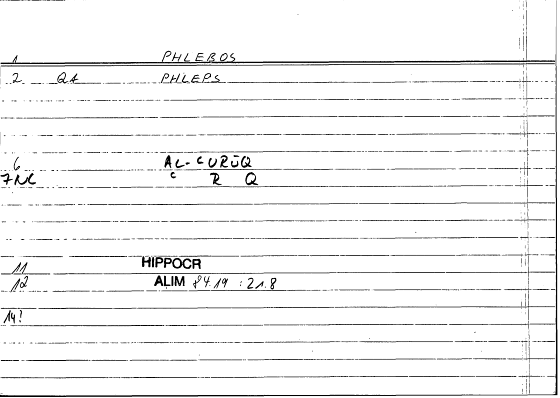 1 PHLEBOS
2 QA PHLEPS
6 AL-ʿURŪQ
7 NC ʿ R Q
11 HIPPOCR
12 ALIM 84.19 : 21.8
14?